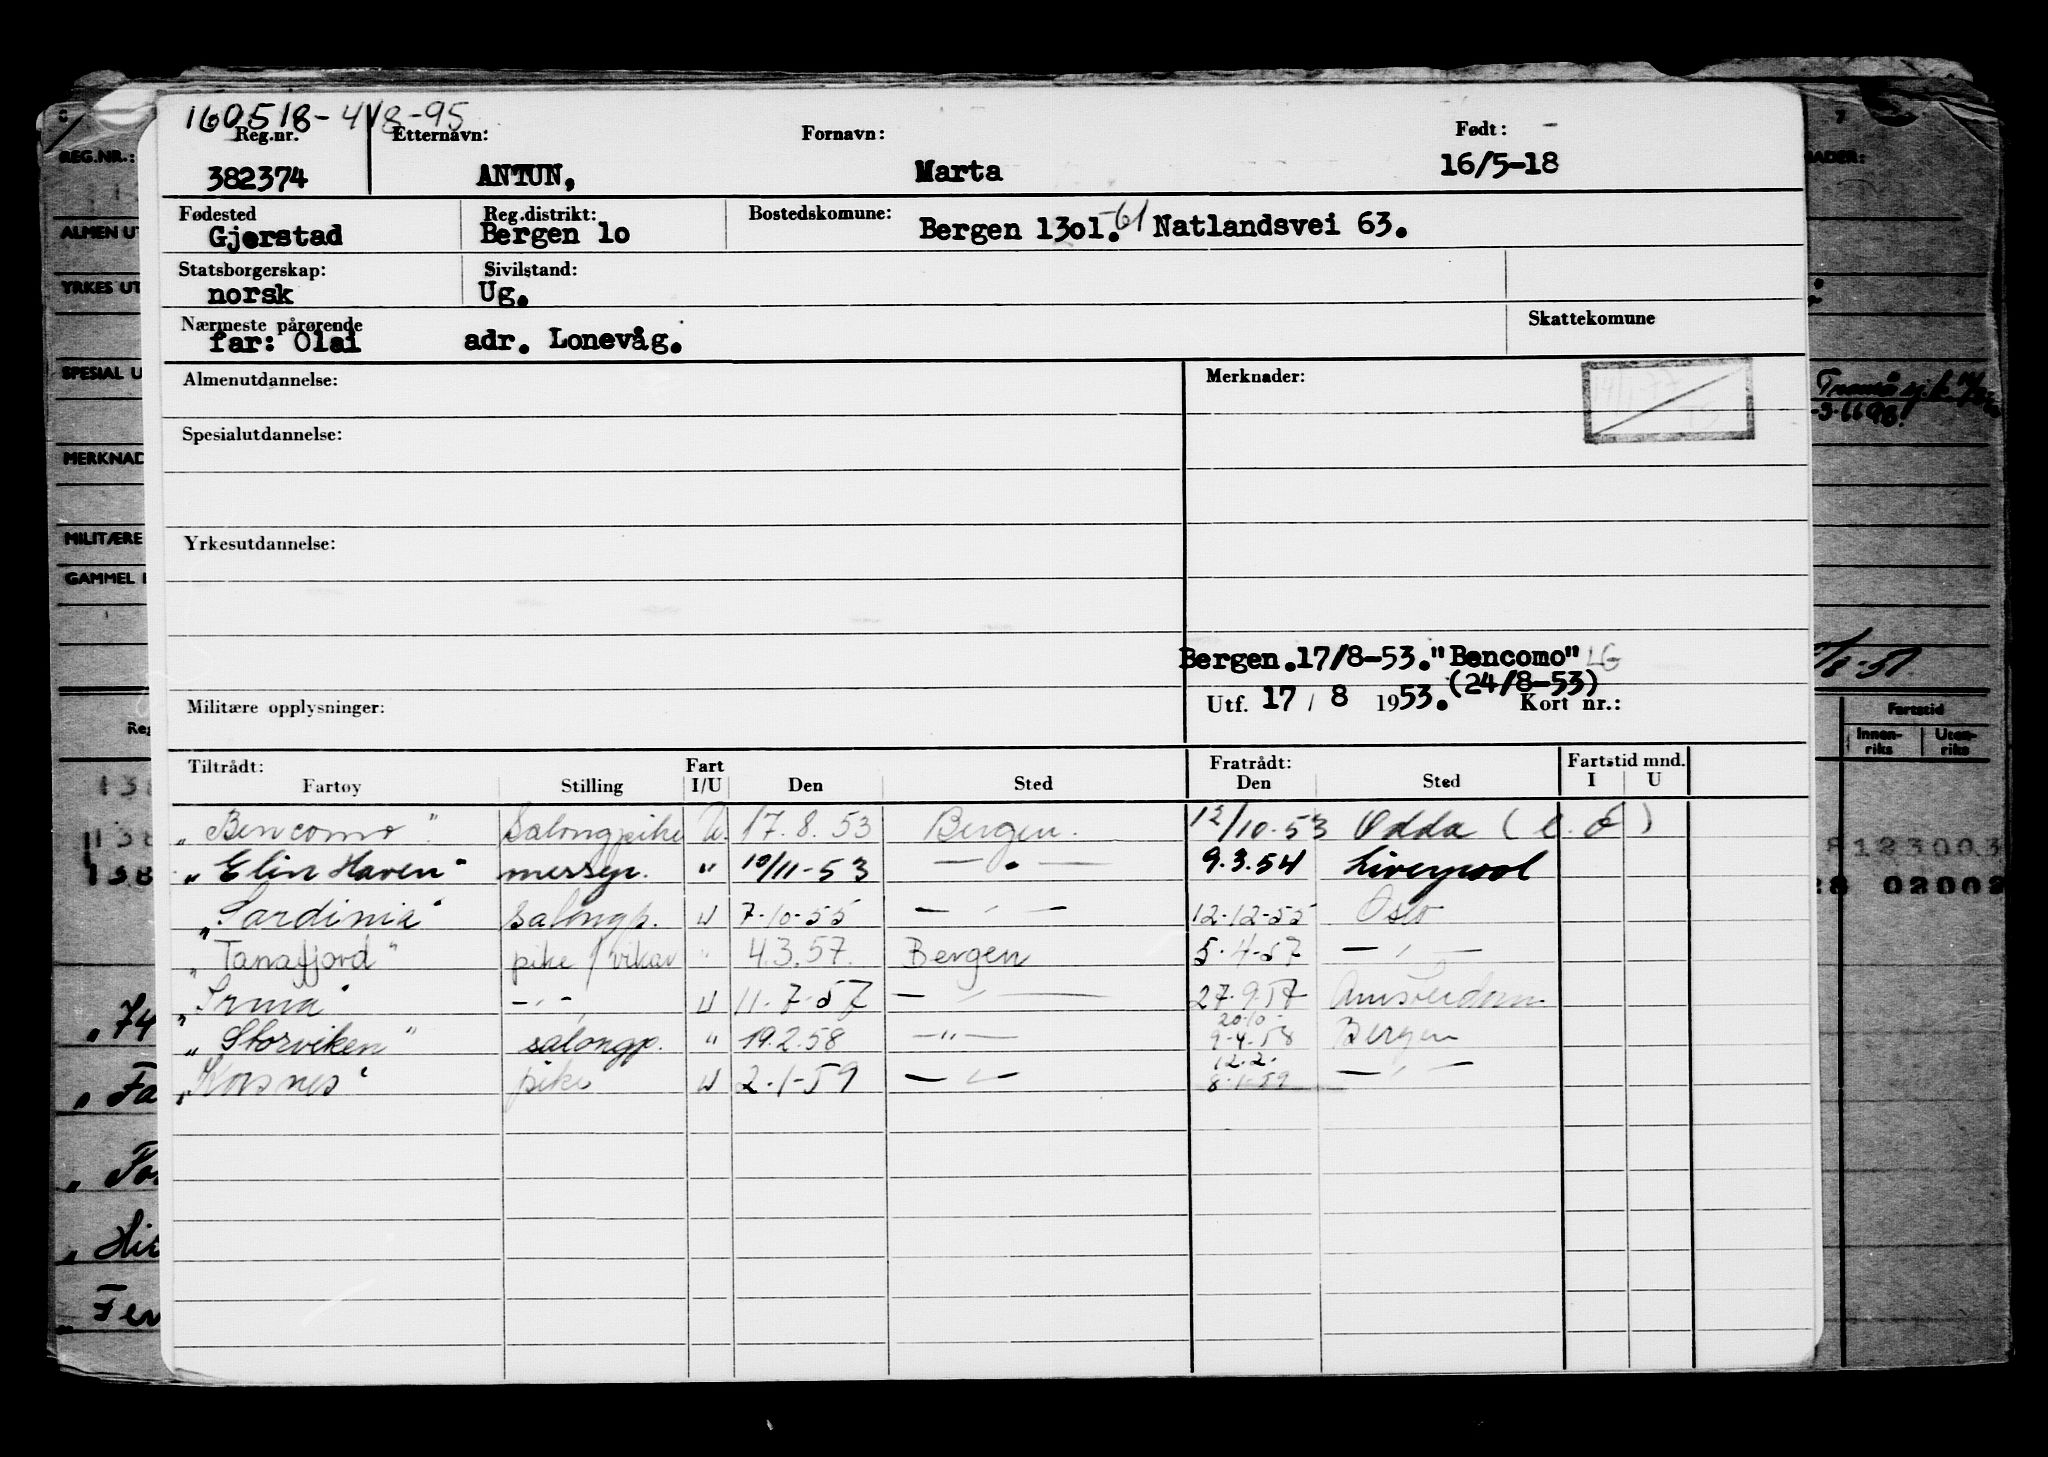 160518-418-95
Reg.nr. Etternavn: Fornavn: Født:
382374 ANTUN, Marta 16/5-18
Fødested Reg.distrikt: Bostedskomune:
Gjerstad Bergen lo Bergen 13ol.-61 Natlandsvei 63.
Statsborgerskap: Sivilstand:
norsk Ug.
Nærmeste pårørende Skattekomune
far: Olai adr. Lonevåg.
Almenutdannelse: Merknader:
Spesialutdannelse:
Yrkesutdannelse:
Bergen.17/8-53."Bencomo" LG
(24/8-53)
Militære opplysninger: Utf. 17 / 8 1953. Kort nr.:
Tiltrådt: Fart Fratrådt: Fartstid mnd.
Fartøy Stilling I/U Den Sted Den Sted I U
"Bencomo" Salongpike U. 17.8.53 Bergen. 12/10-53 Odda
"Elin Haven" messep. " 10/11-53 — " — 9.3.54 Liverpool
"Sardinia" salongp. U 7-10-55 — " — 12-12-55 Oslo
"Tanafjord" pike / vikar " 4.3.57. Bergen 5-4-57 — " —
"Irma" - " - U 11-7-57 — " — 27.9.57 Amsterdam
20.10-
"Storviken" salongp. " 19.2.58 — " — 9-4-58 Bergen
12.2.
"Korsnes" pike U 2.1-59 — " — 8.1-59 — " —
REG.NR.:
ALMEN UT
YRKES UT
SPESIAL U
MERKNAD
MILITÆRE
GAMMEL
Reg
Fartstid
Innen-riks Uten-riks